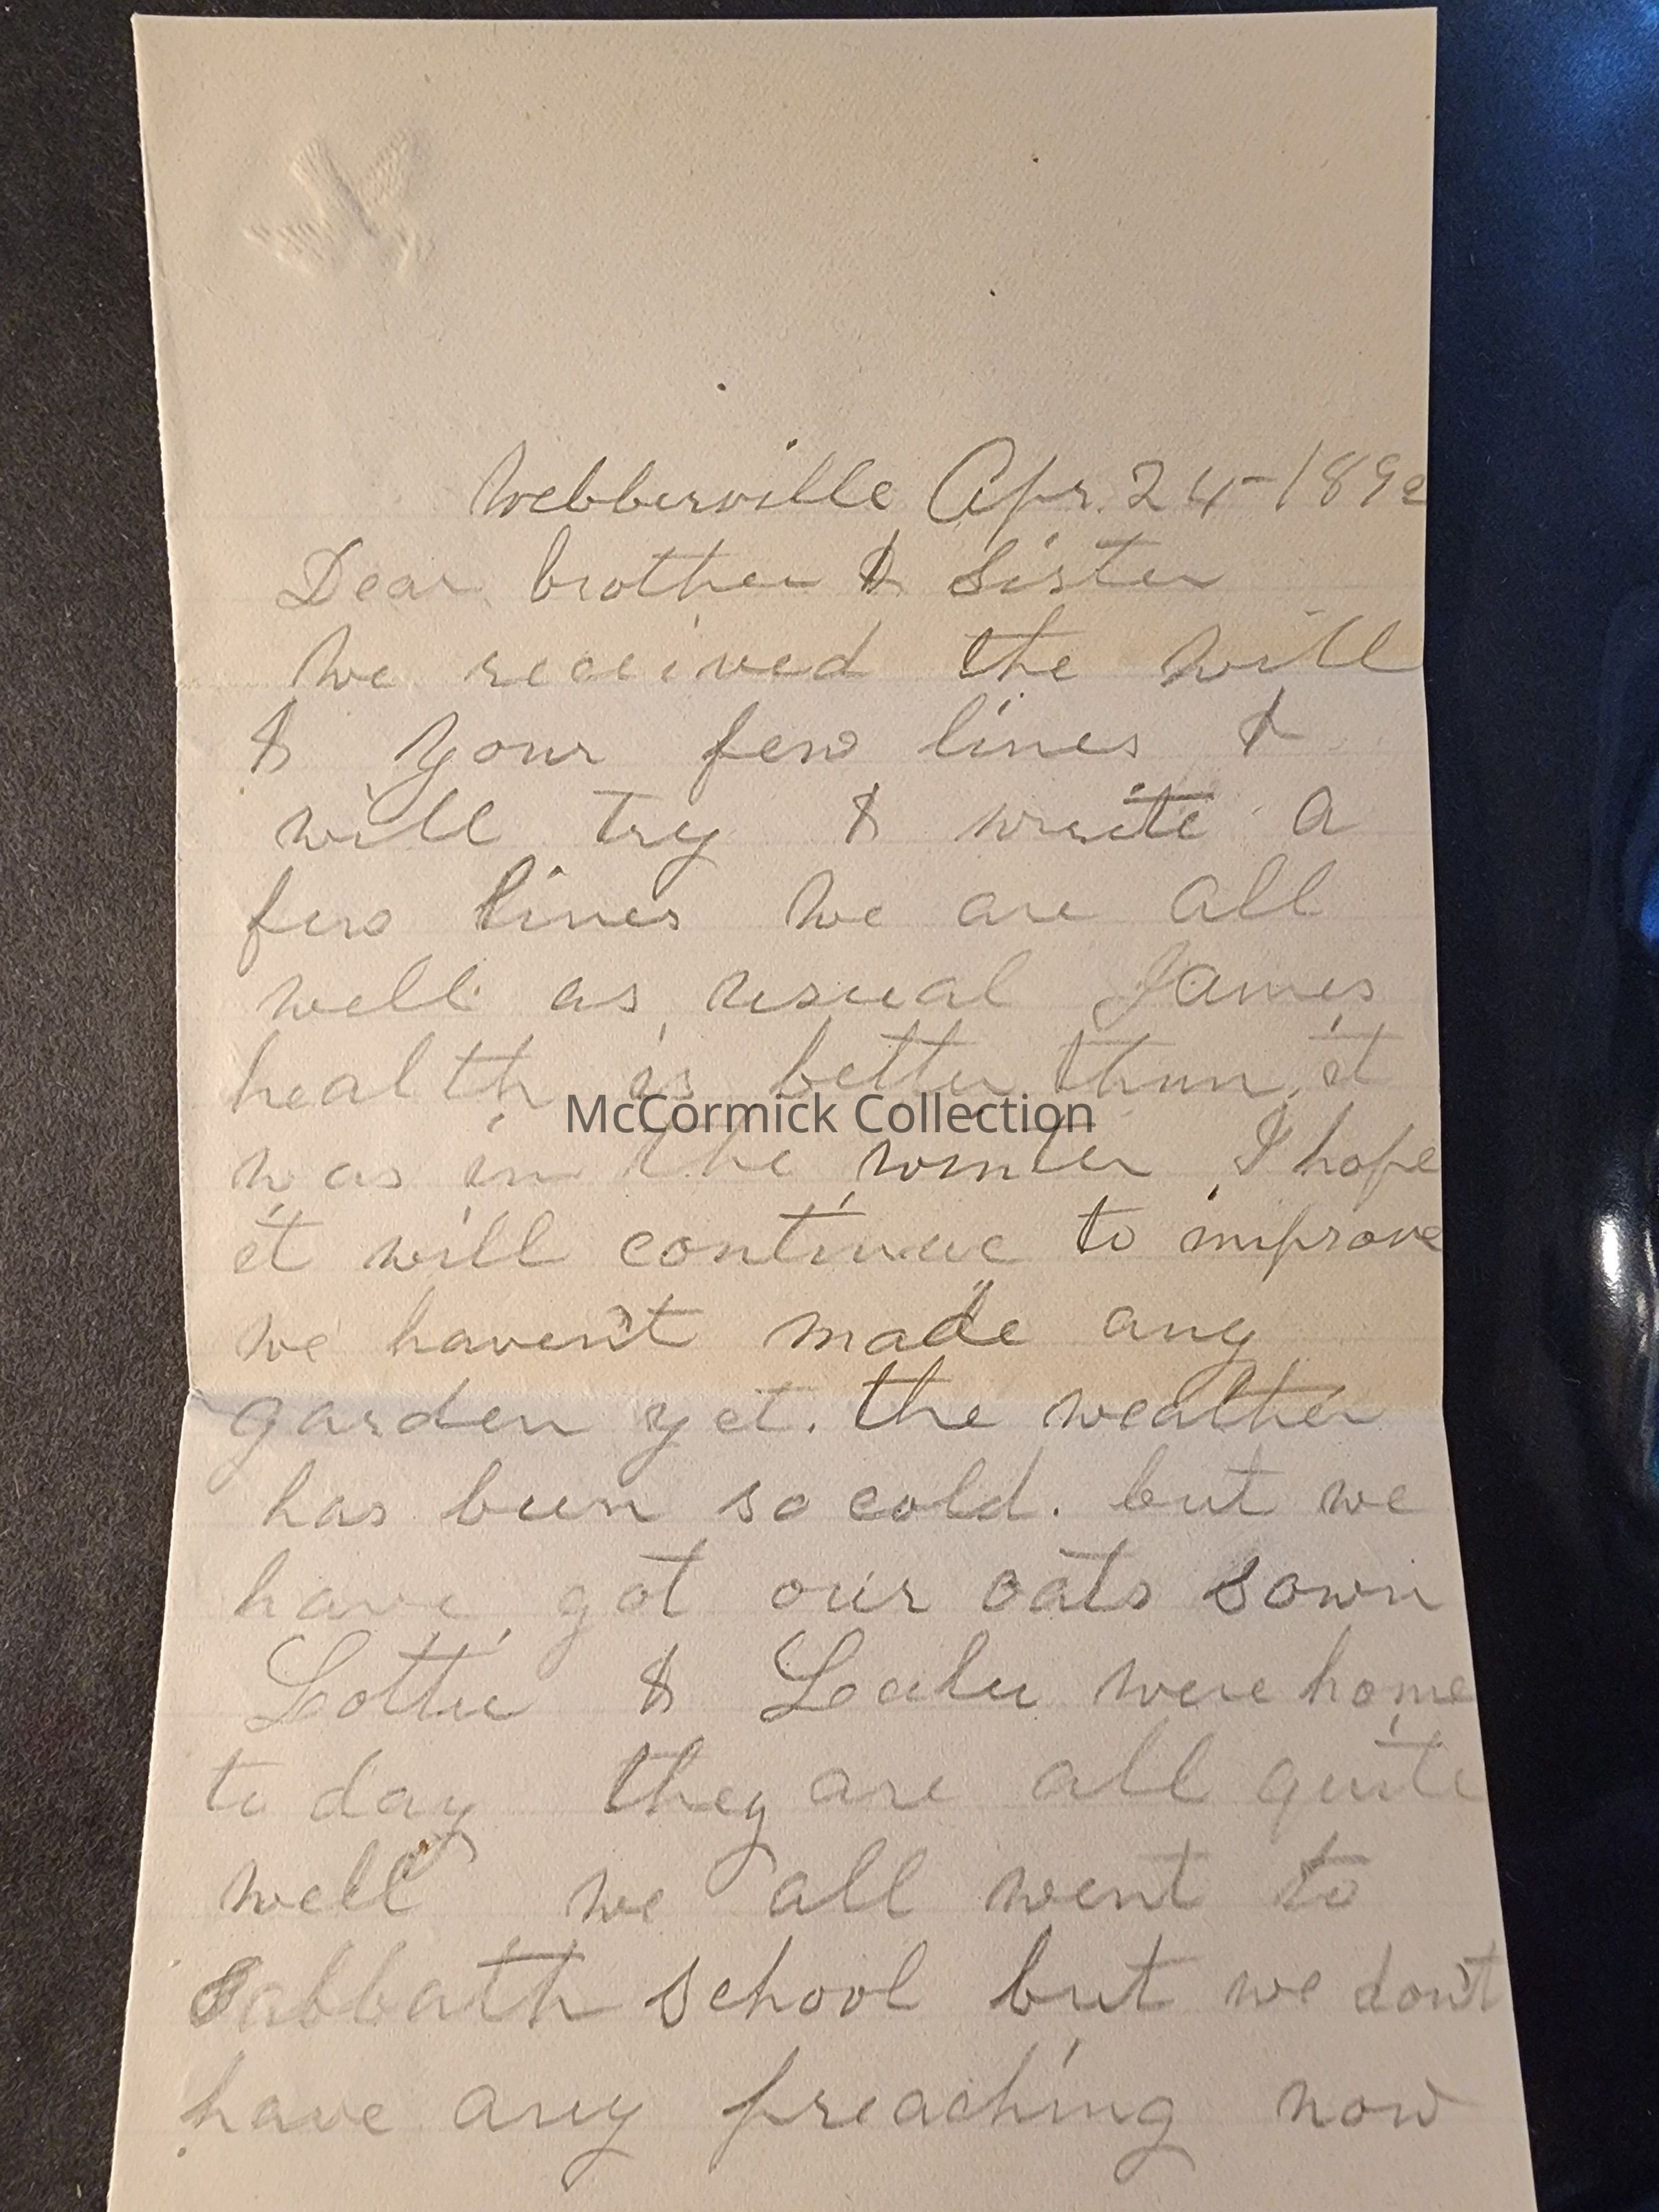 Webberville Apr. 24-1892
Dear brother & Sister
We received the will
& your few lines &
will try & write a
few lines We are all
well as usual James
health is better than it
McCormick Collection
was in the winter I hope
it will continue to improve
we haven't made any
garden yet. the weather
has been so cold. but we
have got our oats sown
Lottie & were home
to day they are all quite
well we all went to
Sabbath school but we don't
have any preaching now